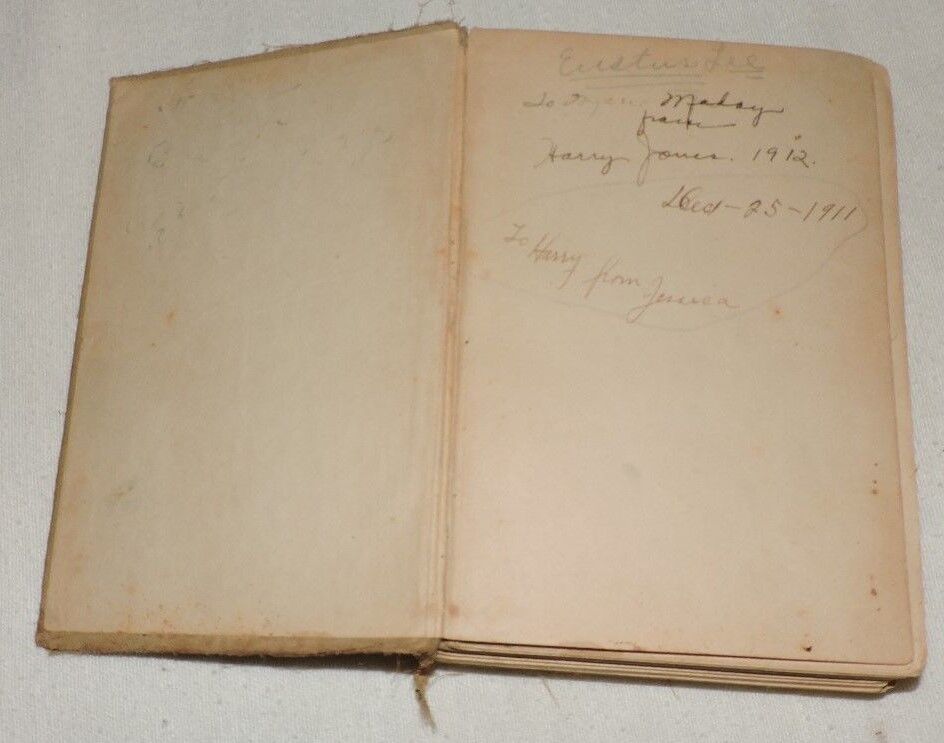 Eustus Lee
To Maloy
from
Harry Jones. 1912.
Dec - 25 - 1911
To Harry
from Jessica